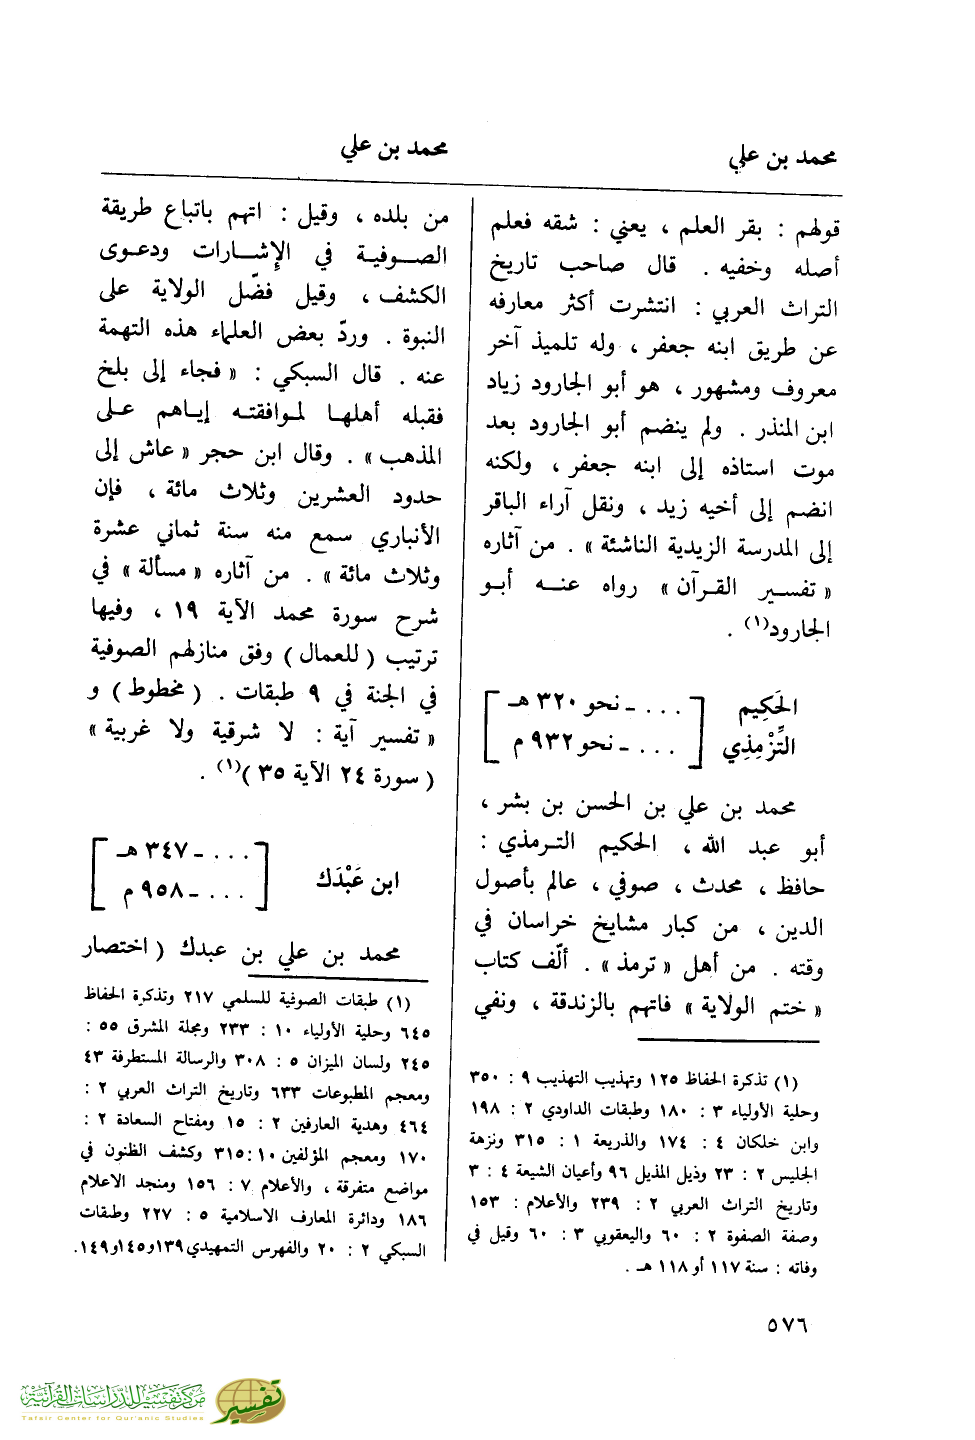 محمد بن علي
محمد بن علي
قولهم : بقر العلم ، يعني : شقه فعلم
أصله وخفيه . قال صاحب تاريخ
التراث العربي : انتشرت أكثر معارفه
عن طريق ابنه جعفر ، وله تلميذ آخر
معروف ومشهور ، هو أبو الجارود زياد
ابن المنذر . ولم ينضم أبو الجارود بعد
موت استاذه إلى ابنه جعفر ، ولكنه
انضم إلى أخيه زيد ، ونقل آراء الباقر
إلى المدرسة الزيدية الناشئة » . من آثاره
« تفسير القرآن » رواه عنه أبو
الجارود(١) .
الحَكِيم [ . . . - نحو ٣٢٠ هـ ]
التِّرْمِذِي [ . . . - نحو ٩٣٢ م ]
محمد بن علي بن الحسن بن بشر ،
أبو عبد الله ، الحكيم الترمذي :
حافظ ، محدث ، صوفي ، عالم بأصول
الدين ، من كبار مشايخ خراسان في
وقته . من أهل « ترمذ » . ألّف كتاب
« ختم الولاية » فاتهم بالزندقة ، ونفي
(١) تذكرة الحفاظ ١٢٥ وتهذيب التهذيب ٩ : ٣٥٠
وحلية الأولياء ٣ : ١٨٠ وطبقات الداودي ٢ : ١٩٨
وابن خلكان ٤ : ١٧٤ والذريعة ١ : ٣١٥ ونزهة
الجليس ٢ : ٢٣ وذيل المذيل ٩٦ وأعيان الشيعة ٤ : ٣
وتاريخ التراث العربي ٢ : ٢٣٩ والأعلام : ١٥٣
وصفة الصفوة ٢ : ٦٠ واليعقوبي ٣ : ٦٠ وقيل في
وفاته : سنة ١١٧ أو ١١٨ هـ .
من بلده ، وقيل : اتهم باتباع طريقة
الصوفية في الإشارات ودعوى
الكشف ، وقيل فضّل الولاية على
النبوة . وردّ بعض العلماء هذه التهمة
عنه . قال السبكي : « فجاء إلى بلخ
فقبله أهلها لموافقته إياهم على
المذهب » . وقال ابن حجر « عاش إلى
حدود العشرين وثلاث مائة ، فإن
الأنباري سمع منه سنة ثماني عشرة
وثلاث مائة » . من آثاره « مسألة » في
شرح سورة محمد الآية ١٩ ، وفيها
ترتيب ( للعمال ) وفق منازلهم الصوفية
في الجنة في ٩ طبقات . ( مخطوط ) و
« تفسير آية : لا شرقية ولا غربية »
( سورة ٢٤ الآية ٣٥ )(١) .
[ . . . - ٣٤٧ هـ ]
ابن عَبْدَك
[ . . . - ٩٥٨ م ]
محمد بن علي بن عبدك ( اختصار
(١) طبقات الصوفية للسلمي ٢١٧ وتذكرة الحفاظ
٦٤٥ وحلية الأولياء ١٠ : ٢٣٣ ومجلة المشرق ٥٥ :
٢٤٥ ولسان الميزان ٥ : ٣٠٨ والرسالة المستطرفة ٤٣
ومعجم المطبوعات ٦٣٣ وتاريخ التراث العربي ٢ :
٤٦٤ وهدية العارفين ٢ : ١٥ ومفتاح السعادة ٢ :
١٧٠ ومعجم المؤلفين ١٠ : ٣١٥ وكشف الظنون في
مواضع متفرقة ، والأعلام ٧ : ١٥٦ ومنجد الاعلام
١٨٦ ودائرة المعارف الاسلامية ٥ : ٢٢٧ وطبقات
السبكي ٢ : ٢٠ والفهرس التمهيدي ١٣٩ و١٤٥ و١٤٩ .
٥٧٦
مركز تفسير للدراسات القرآنية
تفسير
Tafsir Center for Qur'anic Studies